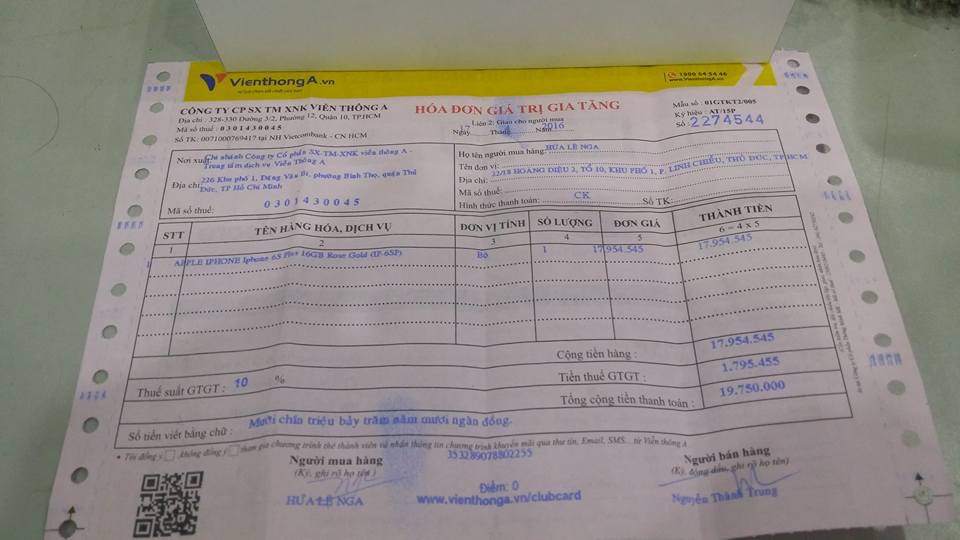 VienthongA.vn
1900 64 54 46
www.VienthongA.vn
CÔNG TY CP SX TM XNK VIỄN THÔNG A
Địa chỉ : 328-330 Đường 3/2, Phường 12, Quận 10, TP.HCM
Mã số thuế : 0301430045
Số TK: 0071000769417 tại NH Vietcombank - CN HCM
HÓA ĐƠN GIÁ TRỊ GIA TĂNG
Liên 2: Giao cho người mua
Ngày 17 Tháng Năm 2016
Mẫu số : 01GTKT2/005
Ký hiệu : AT/15P
Số : 2274544
Nơi xuất Chi nhánh Công ty Cổ phần SX-TM-XNK viễn thông A -
Trung tâm dịch vụ Viễn Thông A
Địa chỉ: 226 Khu phố 1, Đặng Văn Bi, phường Bình Thọ, quận Thủ
Đức, TP Hồ Chí Minh
Mã số thuế: 0301430045
Họ tên người mua hàng: HỨA LỆ NGA
Tên đơn vị:
Địa chỉ: 22/18 HOÀNG DIỆU 2, TỔ 10, KHU PHỐ 1, P. LINH CHIỂU, THỦ ĐỨC, TP.HCM
Mã số thuế:
Hình thức thanh toán: CK Số TK:
STT TÊN HÀNG HÓA, DỊCH VỤ ĐƠN VỊ TÍNH SỐ LƯỢNG ĐƠN GIÁ THÀNH TIỀN
1 2 3 4 5 6 = 4 x 5
1 APPLE IPHONE Iphone 6S Plus 16GB Rose Gold (IP-6SP) Bộ 1 17.954.545 17.954.545
Cộng tiền hàng : 17.954.545
Thuế suất GTGT : 10 % Tiền thuế GTGT : 1.795.455
Tổng cộng tiền thanh toán : 19.750.000
Số tiền viết bằng chữ : Mười chín triệu bảy trăm năm mươi ngàn đồng.
• Tôi đồng ý không đồng ý tham gia chương trình thẻ thành viên và nhận thông tin chương trình khuyến mãi qua thư tín, Email, SMS... từ Viễn thông A
Người mua hàng 353289078802255 Người bán hàng
(Ký, ghi rõ họ tên) (Ký, đóng dấu, ghi rõ họ tên)
Điểm: 0
HỨA LỆ NGA www.vienthonga.vn/clubcard Nguyễn Thành Trung